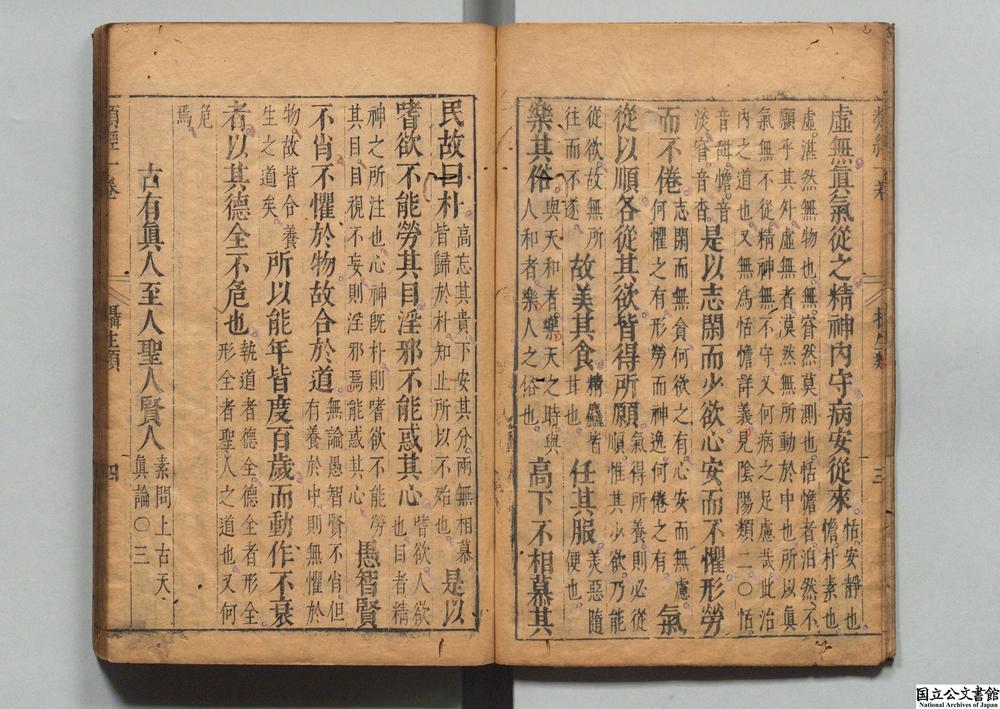 類經一卷 攝生類 三
虛無眞氣從之精神內守病安從來 恬安靜也 憺朴素也
虛湛然無物也無窅然莫測也恬憺者泊然不
願乎其外虛無者漠然無所動於中也所以眞
氣無不從精神無不守又何病之足慮哉此治
內之道也又無爲恬憺詳義見陰陽類二〇恬
音甜憺音 淡窅音杳 是以志閒而少欲心安而不懼形勞
而不倦 志閒而無貪何欲之有心安而無慮 何懼之有形勞而神逸何倦之有 氣
從以順各從其欲皆得所願 氣得所養則必從 順惟其少欲乃能
從欲故無所 往而不遂 故美其食 精麤皆 甘也 任其服 美惡隨 便也
樂其俗 與天和者樂天之時與 人和者樂人之俗也 高下不相慕其
民故曰朴 高忘其貴下安其分兩無相慕 皆歸於朴知止所以不殆也 是以
嗜欲不能勞其目淫邪不能惑其心 嗜欲人欲 也目者精
神之所注也心神旣朴則嗜欲不能勞 其目目視不妄則淫邪焉能惑其心 愚智賢
不肖不懼於物故合於道 無論愚智賢不肖但 有養於中則無懼於
物故皆合養 生之道矣 所以能年皆度百歲而動作不衰
者以其德全不危也 執道者德全德全者形全 形全者聖人之道也又何
危 焉
古有眞人至人聖人賢人 素問上古天 眞論〇三
類經一卷 攝生類 四
国立公文書館
National Archives of Japan